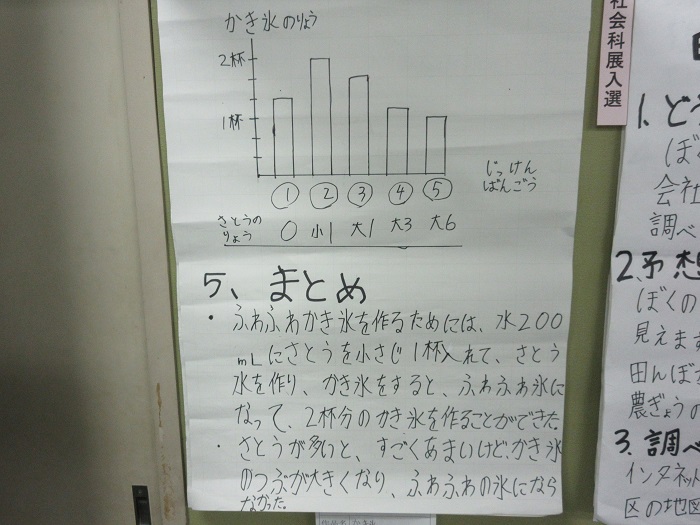 かき氷のりょう
2杯
1杯
じっけん
ばんごう
① ② ③ ④ ⑤
さとうの
りょう
0 小1 大1 大3 大6
5、まとめ
・ふわふわかき氷を作るためには、水200
mLにさとうを小さじ1杯入れて、さとう
水を作り、かき氷をすると、ふわふわ氷に
なって、2杯分のかき氷を作ることができた。
・さとうが多いと、すごくあまいけど、かき氷
のつぶが大きくなり、ふわふわの氷になら
なかった。
社会科展入選
1、ど
ぼく
会社
調べ
2、予想
ぼくの
見えます
田んぼ
農ぎょうの
3、調べ
インタネット
区の地図